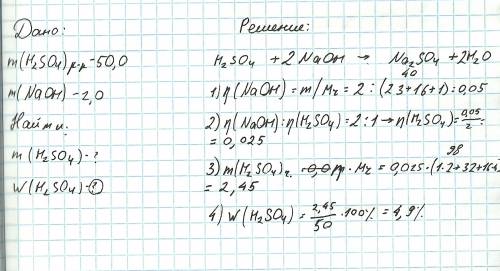 Дано:
m(H₂SO₄)р-р-50,0
m(NaOH)-2,0
Найти:
m(H₂SO₄)-?
W(H₂SO₄)-?
Решение:
H₂SO₄ + 2NaOH → Na₂SO₄ + 2H₂O
40
1) η(NaOH) = m/Mr = 2 : (23+16+1) = 0,05
2) η(NaOH) : η(H₂SO₄) = 2:1 → η(H₂SO₄) = 0,05/2 =
= 0,025
98
3) m(H₂SO₄)r. = η · Mr = 0,025·(1·2+32+16·4)
= 2,45
4) W(H₂SO₄) = 2,45/50 · 100% = 4,9%